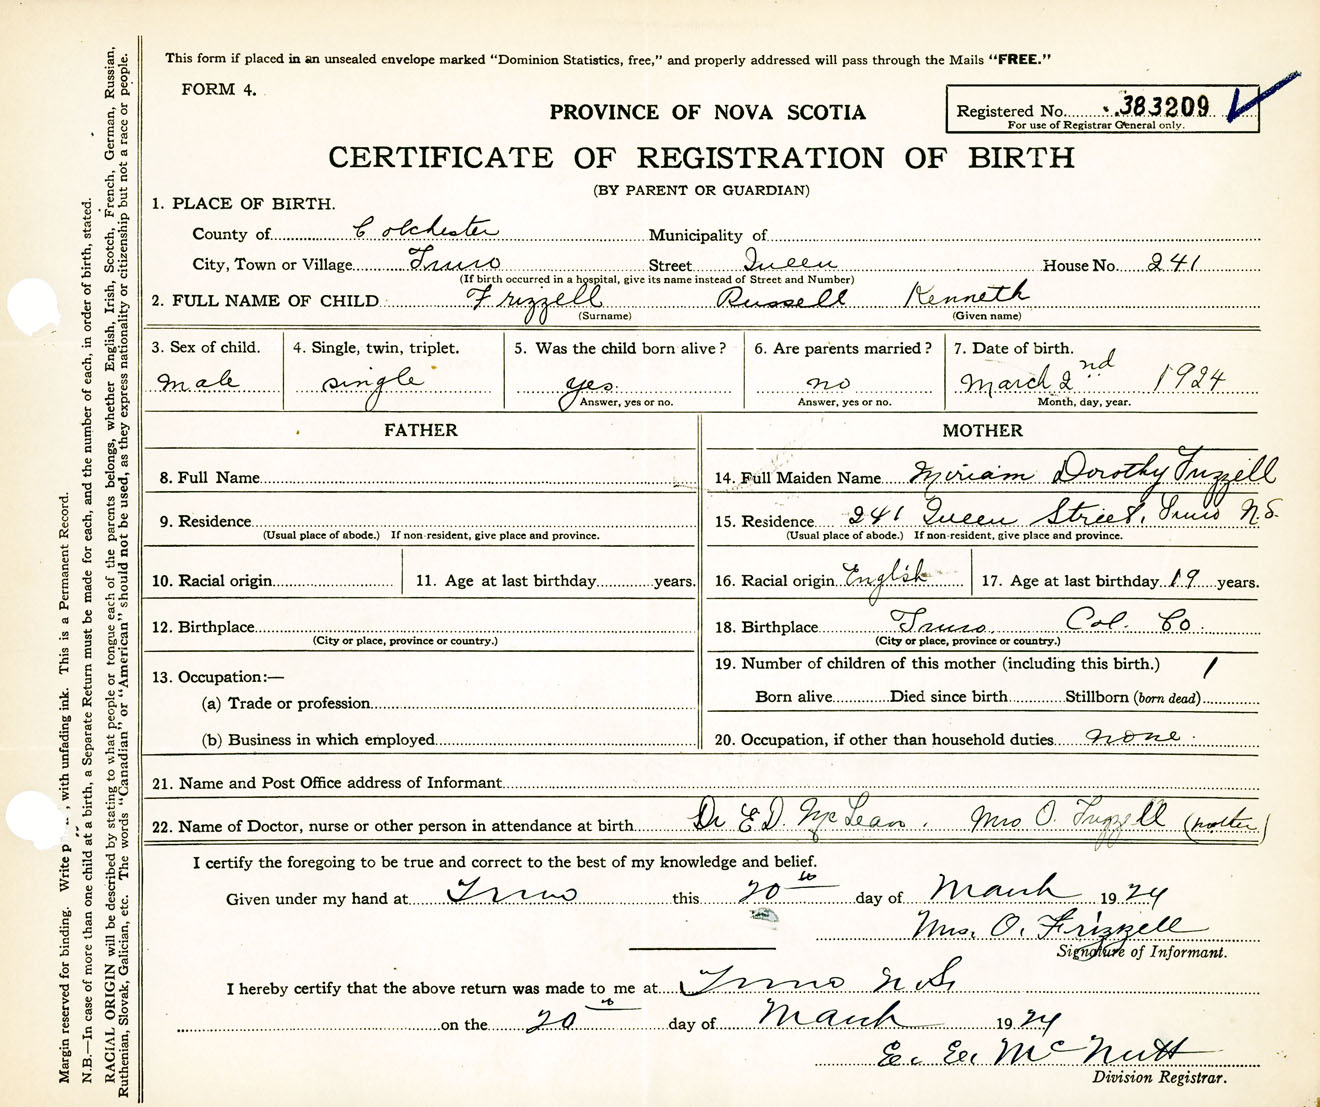 This form if placed in an unsealed envelope marked "Dominion Statistics, free," and properly addressed will pass through the Mails "FREE."
FORM 4.
PROVINCE OF NOVA SCOTIA
Registered No. 383209
For use of Registrar General only.
CERTIFICATE OF REGISTRATION OF BIRTH
(BY PARENT OR GUARDIAN)
1. PLACE OF BIRTH.
County of Colchester Municipality of
City, Town or Village Truro Street Queen House No. 241
(If birth occurred in a hospital, give its name instead of Street and Number)
2. FULL NAME OF CHILD Frizzell Russell Kenneth
(Surname) (Given name)
3. Sex of child. 4. Single, twin, triplet. 5. Was the child born alive? 6. Are parents married? 7. Date of birth.
male single yes no March 2nd 1924
Answer, yes or no. Answer, yes or no. Month, day, year.
FATHER MOTHER
8. Full Name 14. Full Maiden Name Miriam Dorothy Frizzell
9. Residence 15. Residence 241 Queen Street, Truro N.S.
(Usual place of abode.) If non-resident, give place and province. (Usual place of abode.) If non-resident, give place and province.
10. Racial origin 11. Age at last birthday years. 16. Racial origin English 17. Age at last birthday 19 years.
12. Birthplace 18. Birthplace Truro Col. Co.
(City or place, province or country.) (City or place, province or country.)
13. Occupation:— 19. Number of children of this mother (including this birth.) 1
(a) Trade or profession Born alive Died since birth Stillborn (born dead)
(b) Business in which employed 20. Occupation, if other than household duties none.
21. Name and Post Office address of Informant
22. Name of Doctor, nurse or other person in attendance at birth Dr E.D. McLean. Mrs O. Frizzell (mother)
I certify the foregoing to be true and correct to the best of my knowledge and belief.
Given under my hand at Truro this 20th day of March 1924
Mrs. O. Frizzell
Signature of Informant.
I hereby certify that the above return was made to me at Truro N.S.
on the 20th day of March 1924
McNutt
Division Registrar.
Margin reserved for binding. Write , with unfading ink. This is a Permanent Record.
N.B.—In case of more than one child at a birth, a Separate Return must be made for each, and the number of each, in order of birth, stated.
RACIAL ORIGIN will be described by stating to what people or tongue each of the parents belongs, whether English, Irish, Scotch, French, German, Russian,
Ruthenian, Slovak, Galician, etc. The words "Canadian" or "American" should not be used, as they express nationality or citizenship but not a race or people.